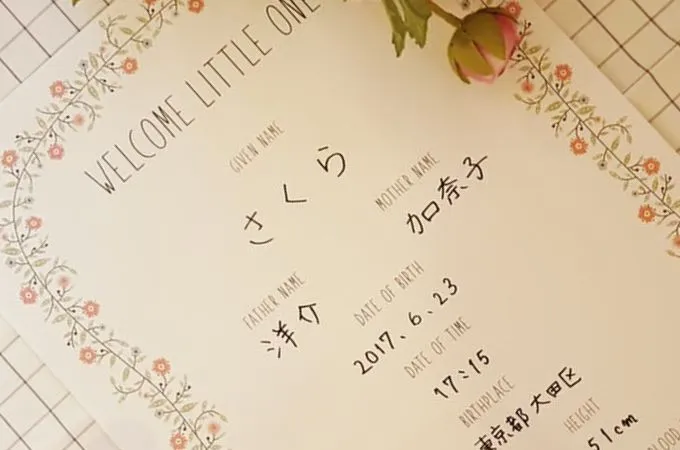 WELCOME LITTLE ONE
GIVEN NAME
さくら
MOTHER NAME
加奈子
FATHER NAME
洋介
DATE OF BIRTH
2017、6、23
DATE OF TIME
17:15
BIRTHPLACE
東京都大田区
HEIGHT
51cm
BLOOD